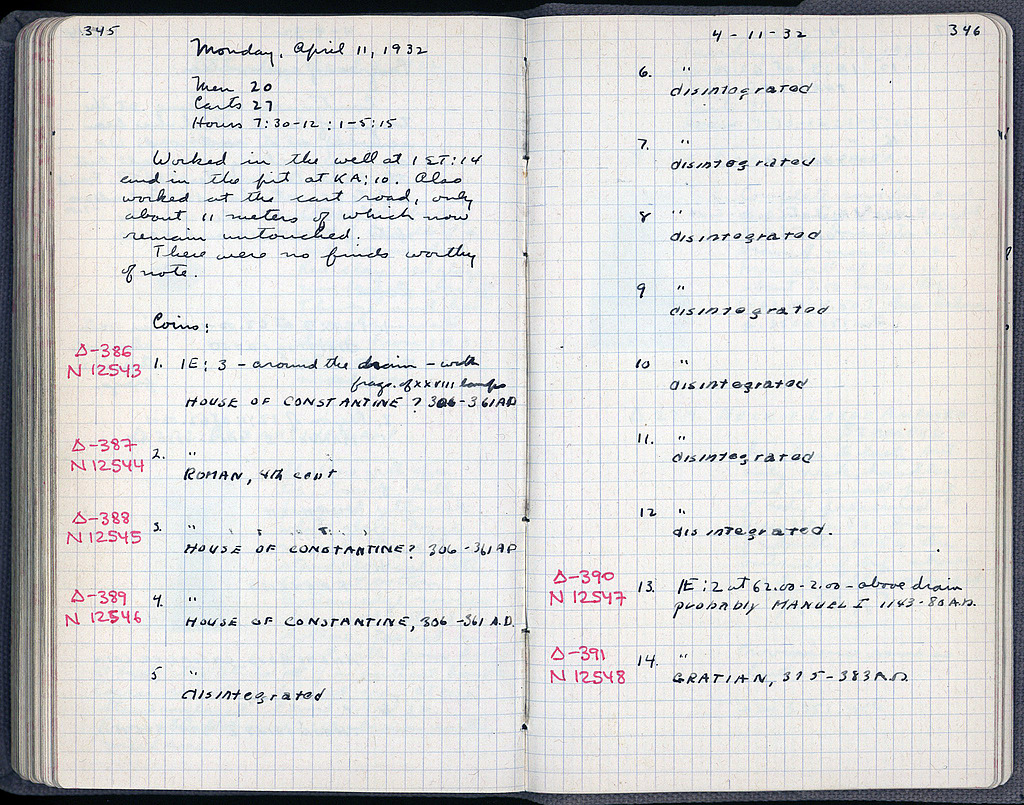 345
Monday, April 11, 1932
Men 20
Carts 27
Hours 7:30-12 : 1-5:15
Worked in the well at 1 ET:14
and in the pit at KA:10. Also
worked at the cart road, only
about 11 meters of which now
remain untouched.
There were no finds worthy
of note.
Coins:
Δ-386
N 12543
1. IE: 3 - around the drain - with
frags. of XXVIII lamps
HOUSE OF CONSTANTINE ? 306-361 AD
Δ-387
N 12544
2. "
ROMAN, 4th cent
Δ-388
N 12545
3. "
HOUSE OF CONSTANTINE? 306-361 AD
Δ-389
N 12546
4. "
HOUSE OF CONSTANTINE, 306-361 A.D.
5 "
disintegrated
4-11-32
346
6. "
disintegrated
7. "
disintegrated
8 "
disintegrated
9 "
disintegrated
10 "
disintegrated
11. "
disintegrated
12 "
disintegrated.
Δ-390
N 12547
13. IE:2 at 62.00-2.00 - above drain
probably MANUEL I 1143-80 A.D.
Δ-391
N 12548
14. "
GRATIAN, 375-383 A.D.